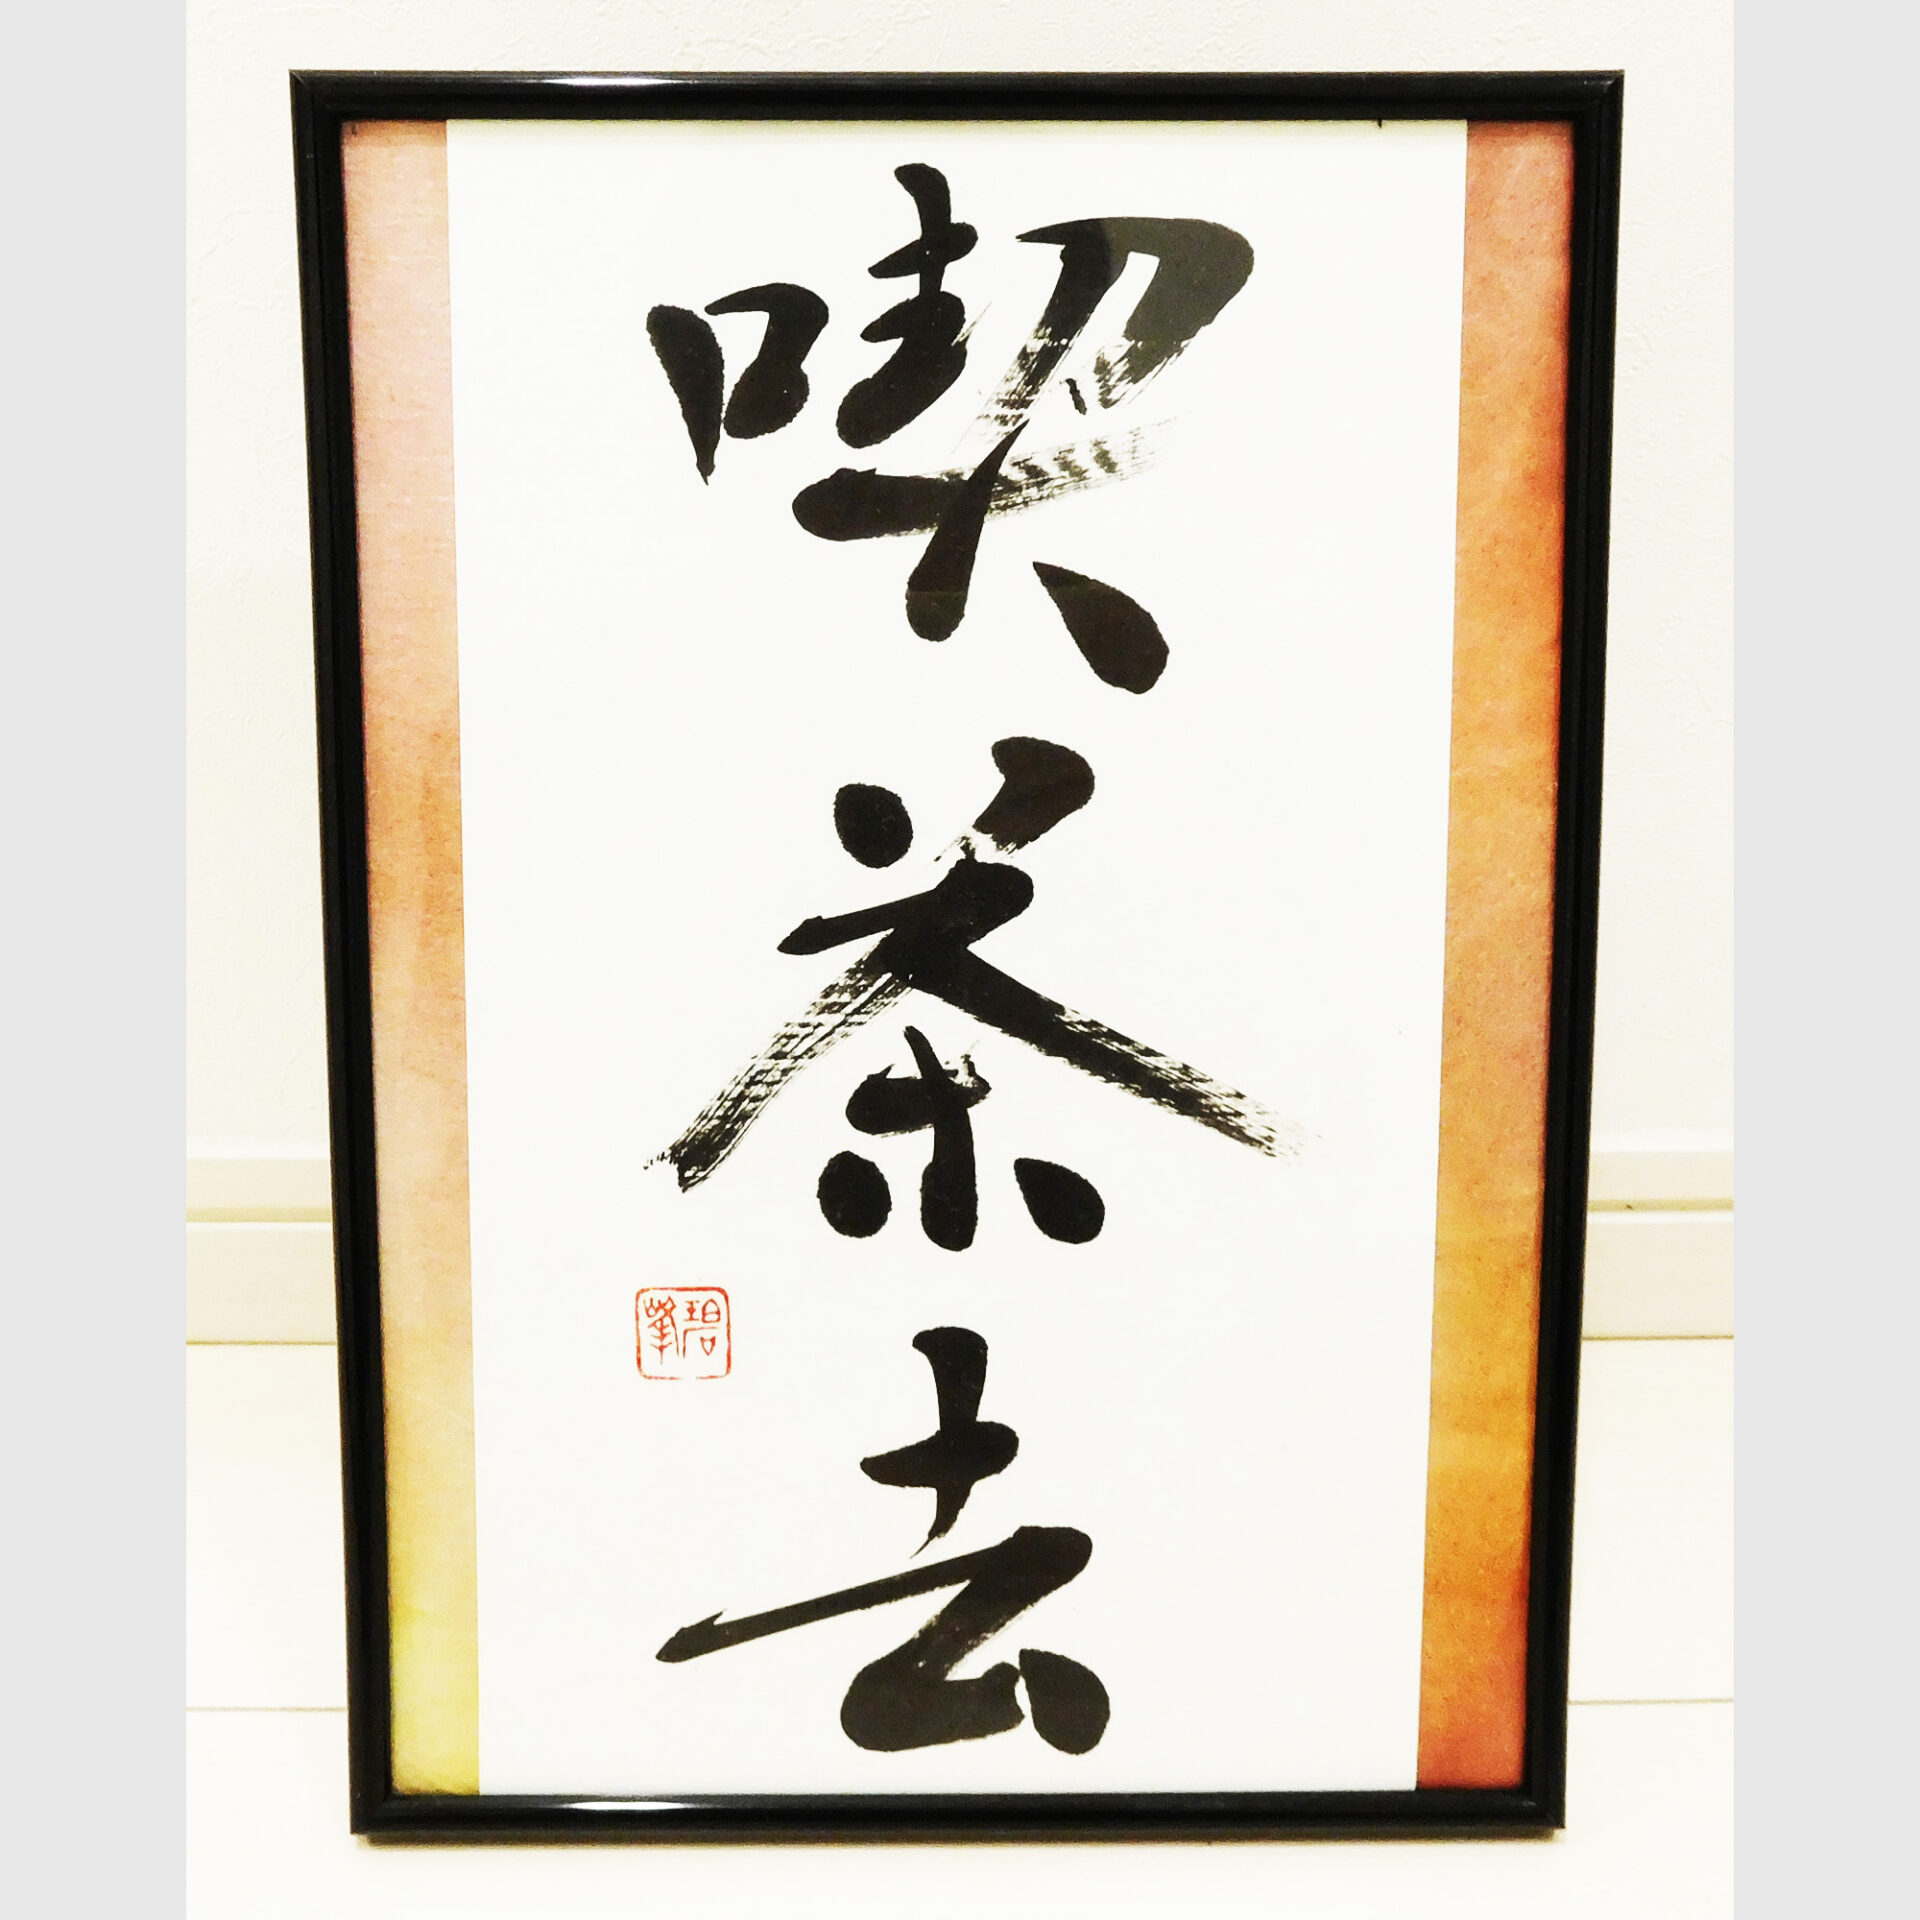 喫茶去
碧峯